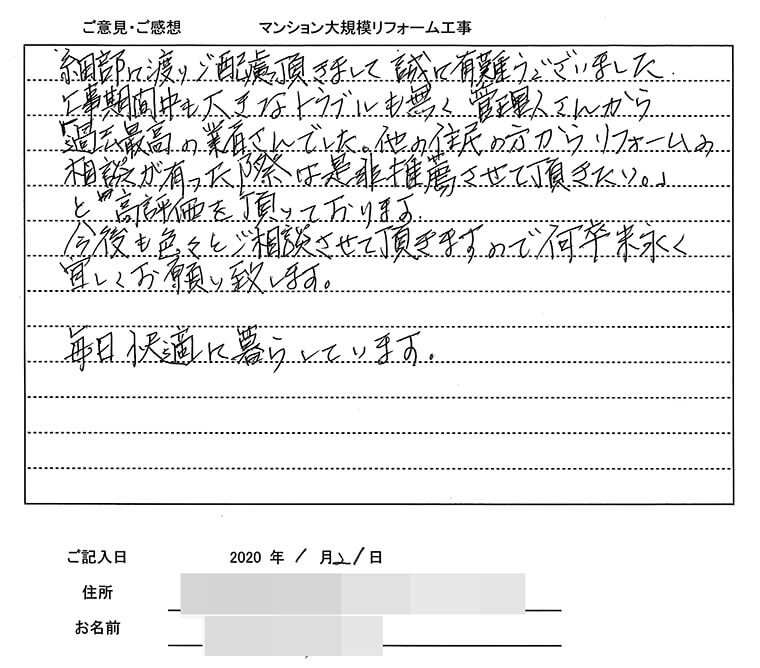 ご意見・ご感想 マンション大規模リフォーム工事
細部に渡りご配慮頂きまして誠に有難うございました.
工事期間中も大きなトラブルも無く管理人さんから
「過去最高の業者さんでした。他の住民の方からリフォームの
相談が有った際は是非推薦させて頂きたい。」
と高評価を頂いております.
今後も色々とご相談させて頂きますので何卒末永く
宜しくお願い致します。
毎日快適に暮らしています.
ご記入日 2020 年 1 月 21 日
住所
お名前